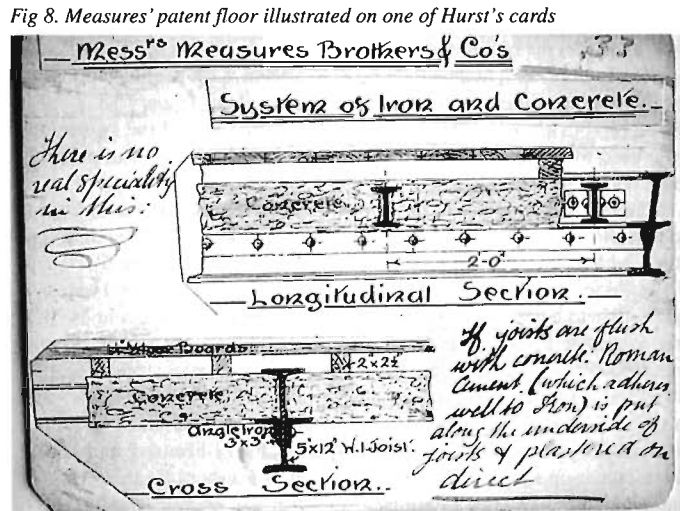 Fig 8. Measures' patent floor illustrated on one of Hurst's cards
Messrs Measures Brothers & Co's
33
System of Iron and Concrete.
There is no
real speciality
in this.
Concrete
2'-0"
Longitudinal Section.
Floor Boards
2"x2½"
Concrete
Angle Iron
3"x3"
5"x12" W.I. Joist.
Cross Section..
If joists are flush
with concrete. Roman
Cement (which adheres
well to Iron) is put
along the underside of
joists & plastered on
direct